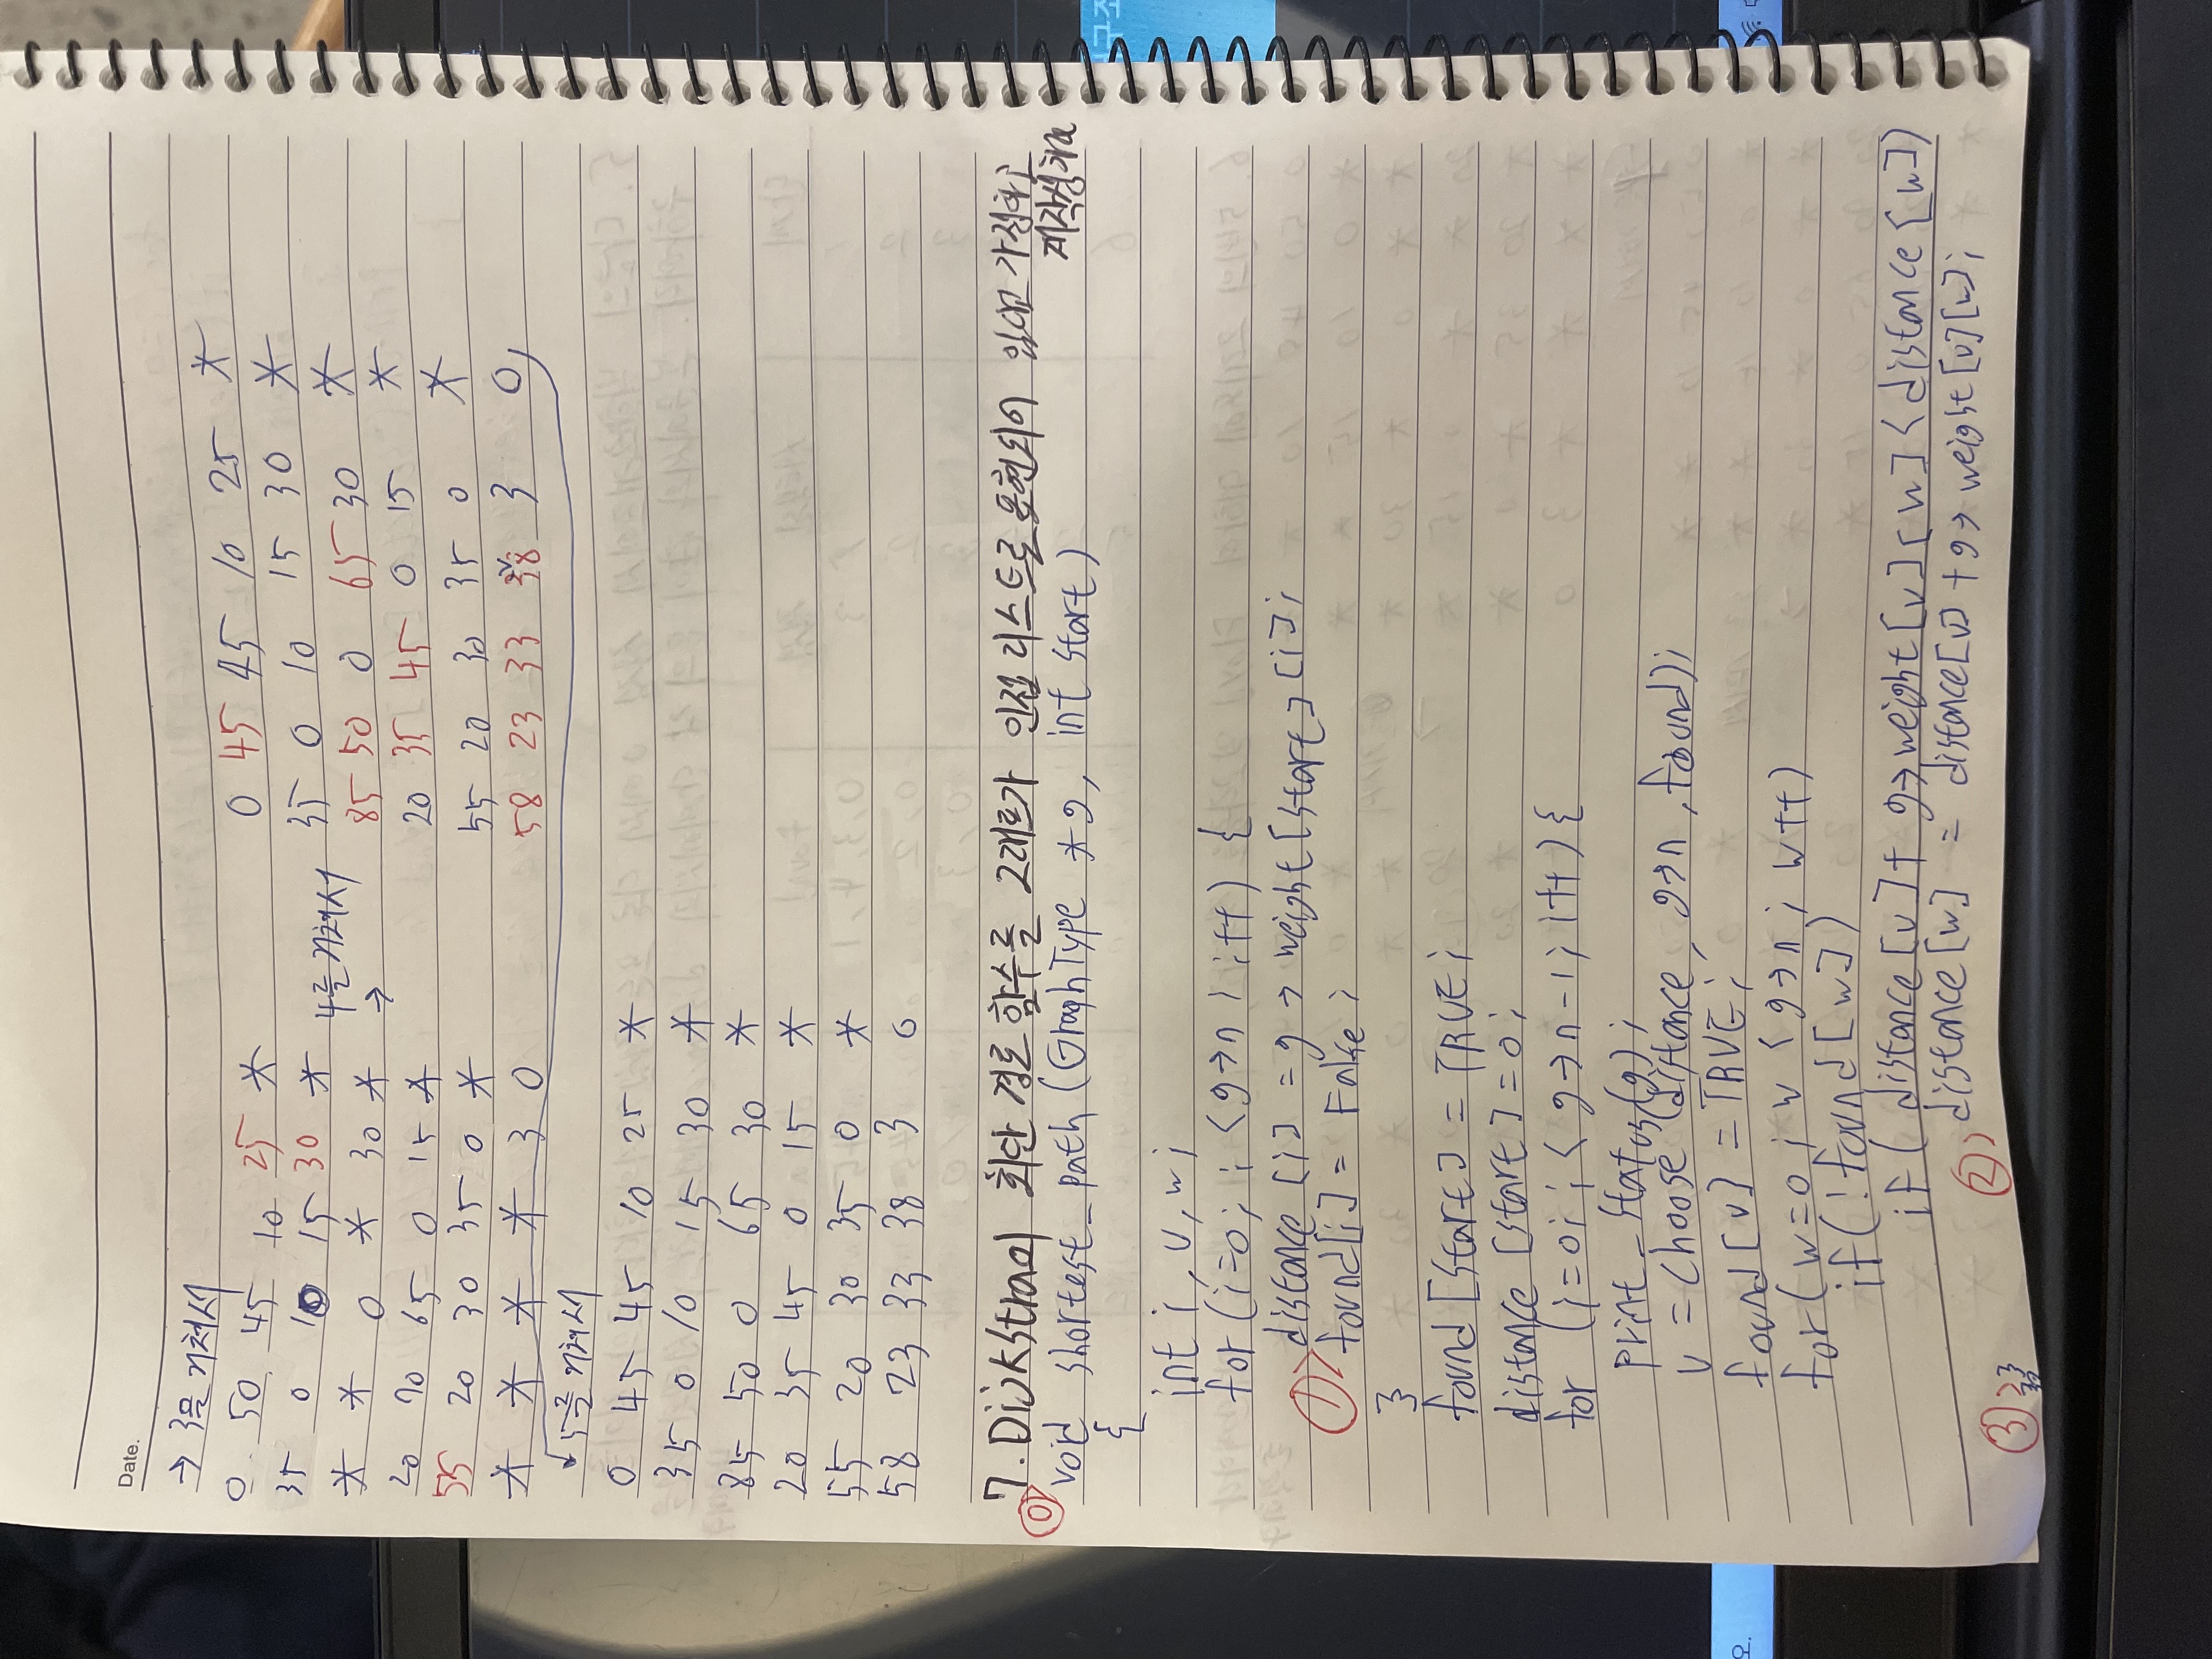 Date.
→ 3을 거쳐서
0 50 45 10 25 *
35 0 10 15 30 *
* * 0 * 30 *
20 70 65 0 15 *
55 20 30 35 0 *
* * * * 3 0
4를 거쳐서
→
0 45 45 10 25 *
35 0 10 15 30 *
85 50 0 65 30 *
20 35 45 0 15 *
55 20 30 35 0 *
58 23 33 38 3 0
5를 거쳐서
0 45 45 10 25 *
35 0 10 15 30 *
85 50 0 65 30 *
20 35 45 0 15 *
55 20 30 35 0 *
58 23 33 38 3 0
7. Dijkstra의 최단 경로 함수를 그래프가 인접 리스트로 표현되어 있다고 가정하고
재작성하라
⓪ void shortest_path (GraphType *g, int start)
{
int i, v, w;
for (i=0; i <g→n ; i++) {
distance [i] = g → weight[start] [i];
① found[i] = False;
}
found [start] = TRUE;
distance [start] = 0;
for (i=0; i < g→n-1; i++){
print_status(g);
v = choose (distance, g→n, found);
found[v] = TRUE;
for(w=0; w <g→n; w++)
if(!found[w])
if( distance[v]+ g→weight[v][w] <distance[w])
② distance[w] = distance[v] +g→ weight[v][w];
③ }}
}}
구조
오.